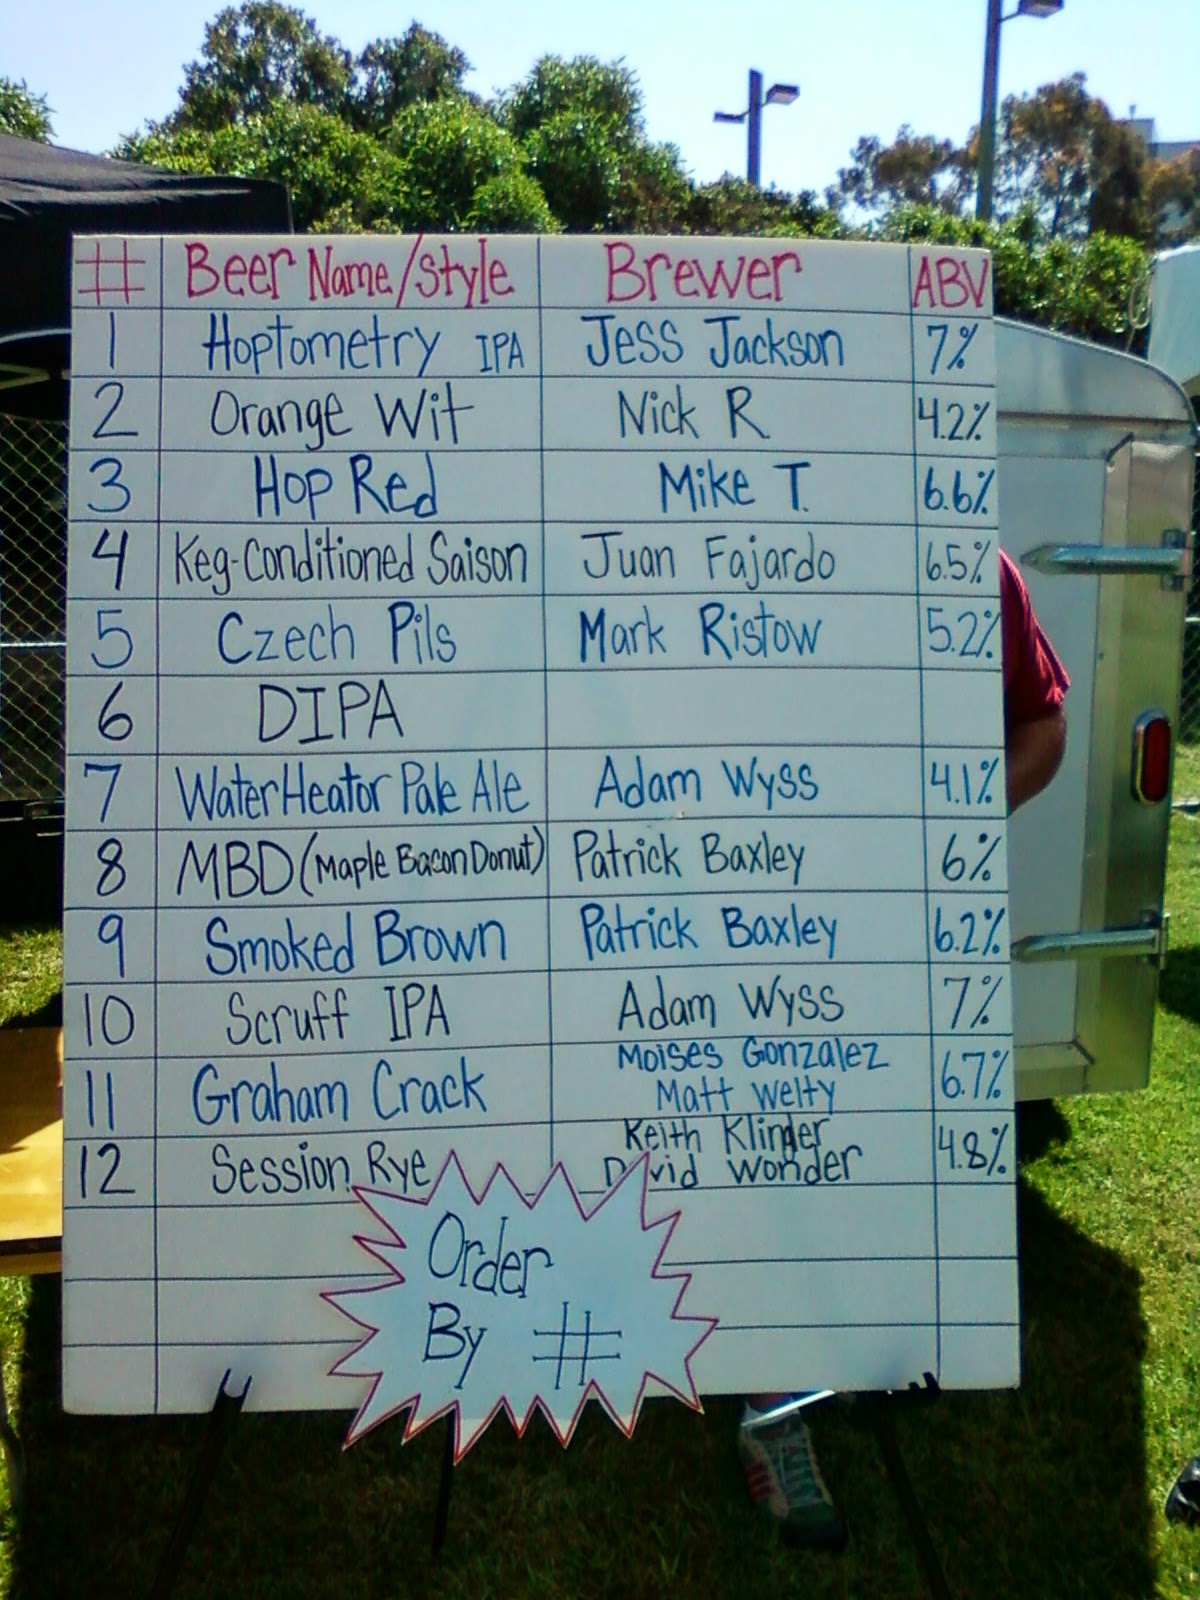 # Beer Name/Style Brewer ABV
1 Hoptometry IPA Jess Jackson 7%
2 Orange Wit Nick R 4.2%
3 Hop Red Mike T. 6.6%
4 Keg-Conditioned Saison Juan Fajardo 6.5%
5 Czech Pils Mark Ristow 5.2%
6 DIPA
7 Water Heator Pale Ale Adam Wyss 4.1%
8 MBD (Maple Bacon Donut) Patrick Baxley 6%
9 Smoked Brown Patrick Baxley 6.2%
10 Scruff IPA Adam Wyss 7%
11 Graham Crack Moises Gonzalez 6.7%
Matt Welty
12 Session Rye Keith Klinder 4.8%
David Wonder
Order
By #